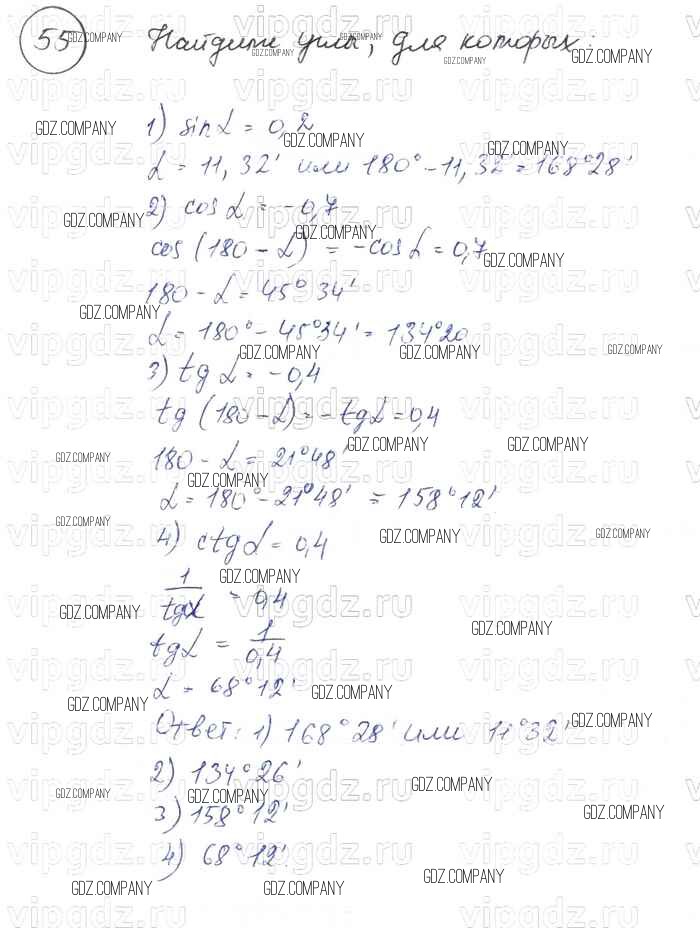 55 Найдите углы, для которых:
1) sin α = 0,2
α = 11, 32' или 180° - 11, 32' = 168°28'
2) cos α = -0,7
cos (180 - α) = -cos α = 0,7
180 - α = 45° 34'
α = 180° - 45°34' = 134°20
3) tg α = -0,4
tg (180 - α) = -tg α = 0,4
180 - α = 21°48'
α = 180° - 21°48' = 158°12'
4) ctg α = 0,4
1/tg α = 0,4
tg α = 1/0,4
α = 68°12'
Ответ: 1) 168°28' или 11°32'
2) 134°26'
3) 158°12'
4) 68°12'
GDZ.COMPANY
vipgdz.ru